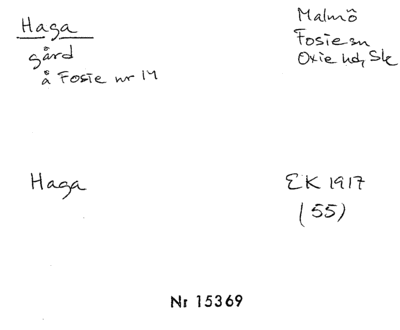 Haga
gård
å Fosie nr 14
Malmö
Fosie sn
Oxie hd, Sk
Haga
EK 1917
(55)
Nr 15369